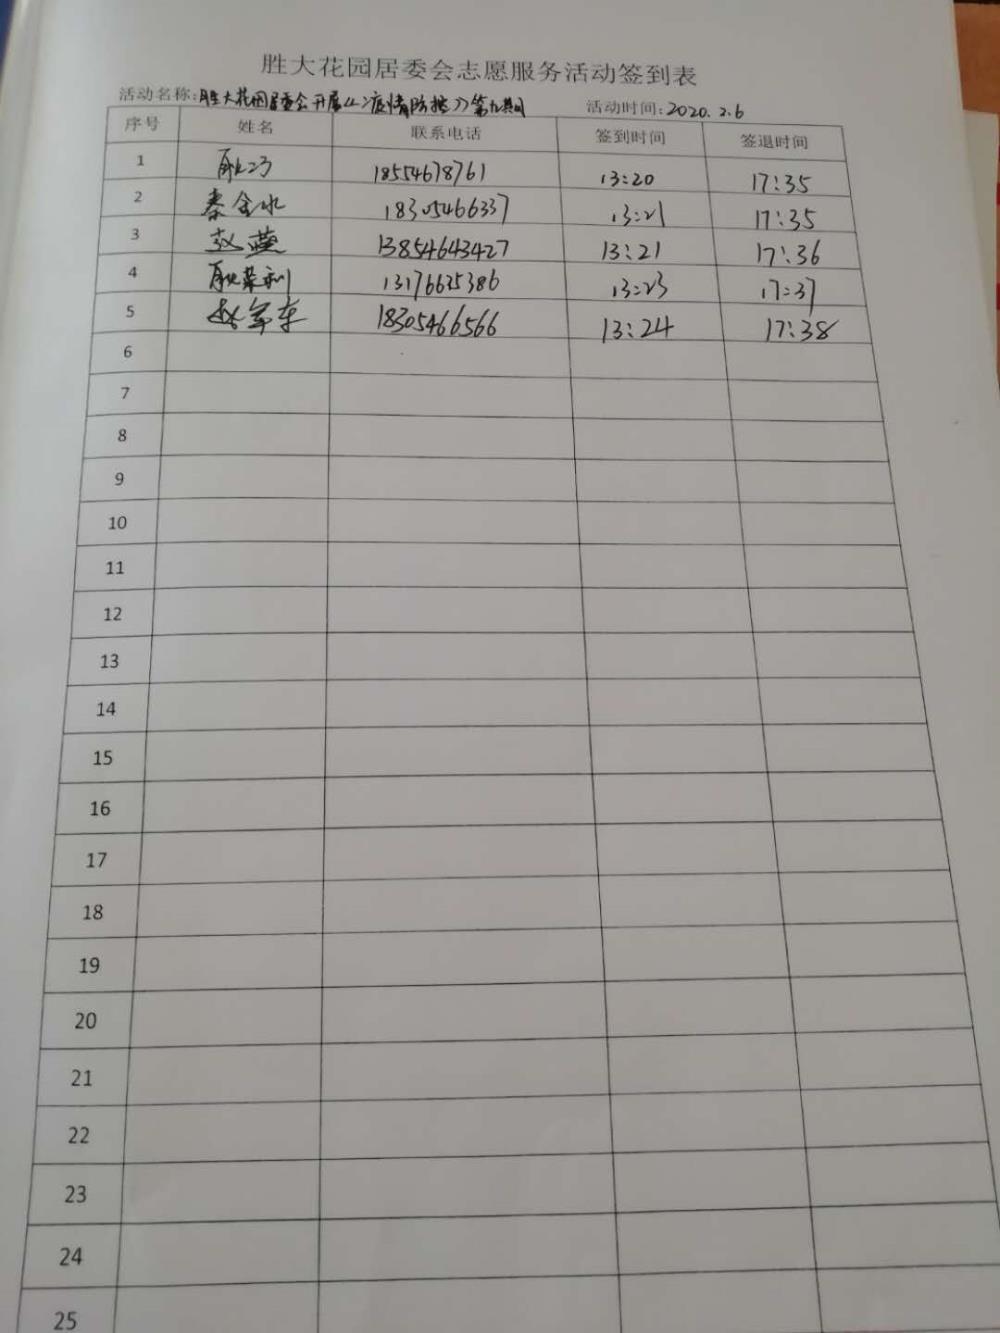 胜大花园居委会志愿服务活动签到表
活动名称:胜大花园居委会开展《疫情防控》第九期 活动时间:2020.2.6
序号 姓名 联系电话 签到时间 签退时间
1 18554678761 13:20 17:35
2 秦金水 18305466337 13:21 17:35
3 赵燕 13854643427 13:21 17:36
4 耿荣利 13176625386 13:23 17:37
5 赵军东 18305466566 13:24 17:38
6
7
8
9
10
11
12
13
14
15
16
17
18
19
20
21
22
23
24
25